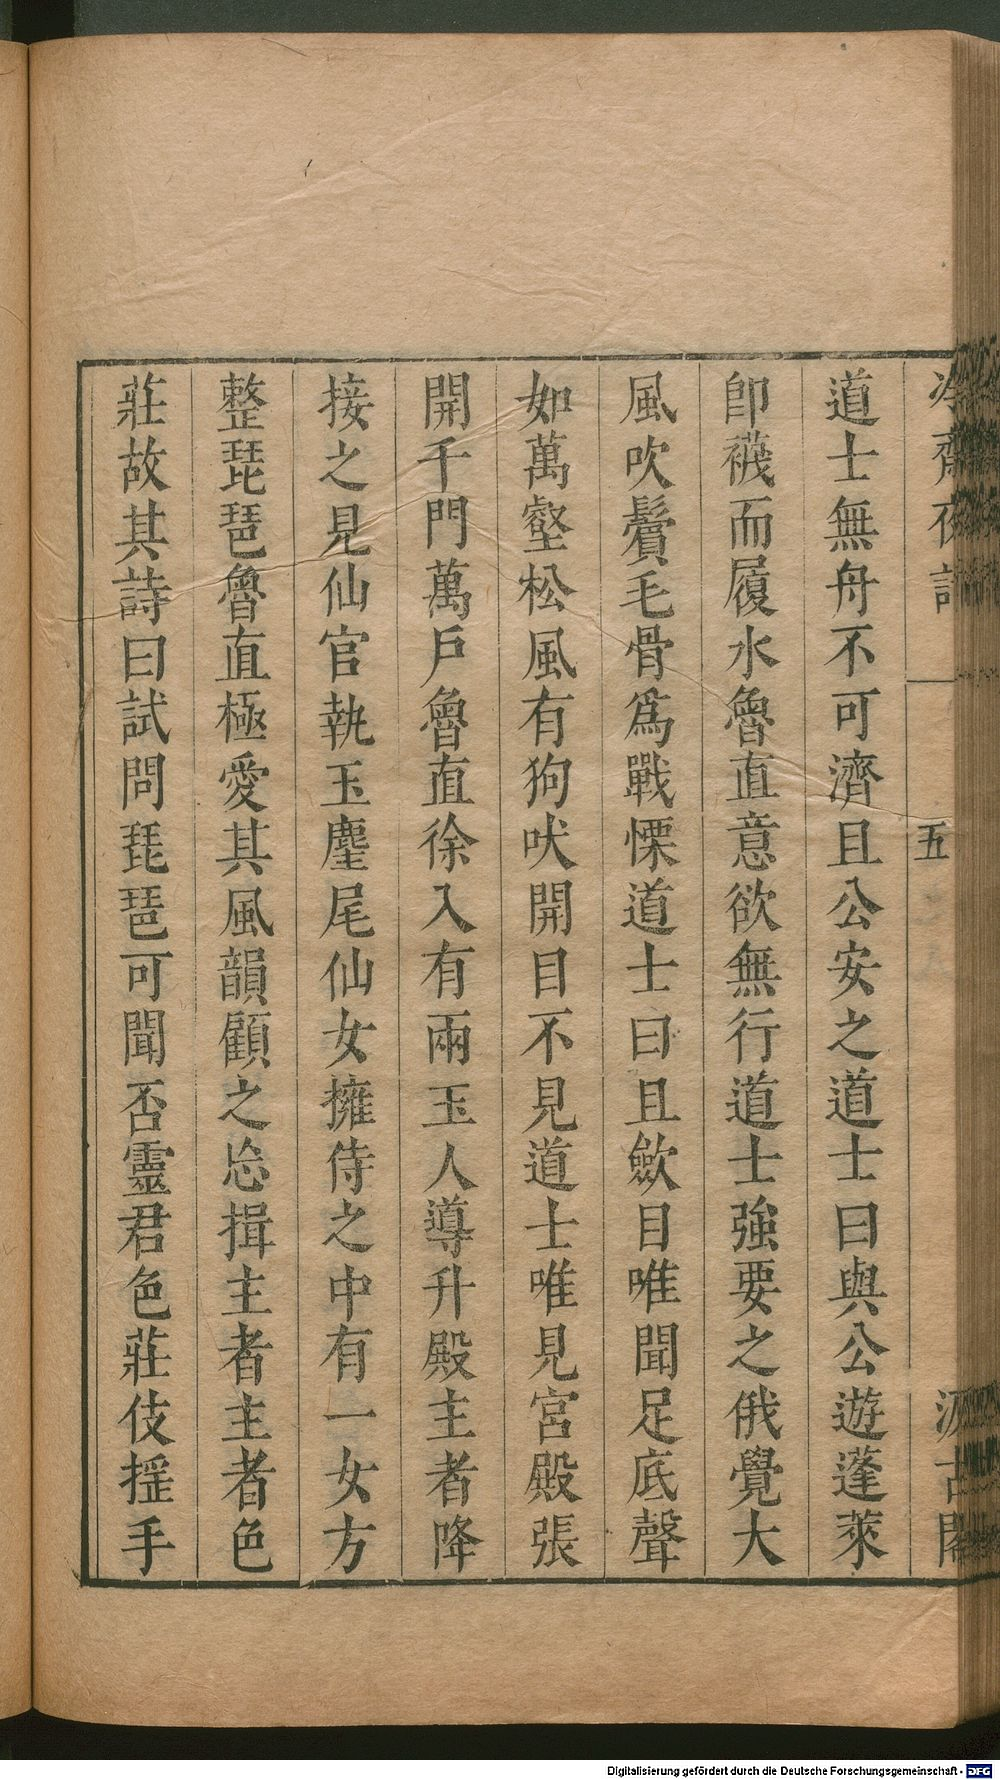 冷齋夜話
五
汲古閣
道士無舟不可濟且公安之道士曰與公遊蓬萊
卽襪而履水魯直意欲無行道士強要之俄覺大
風吹鬢毛骨爲戰慄道士曰且斂目唯聞足底聲
如萬壑松風有狗吠開目不見道士唯見宮殿張
開千門萬戶魯直徐入有兩玉人導升殿主者降
接之見仙官執玉麈尾仙女擁侍之中有一女方
整琵琶魯直極愛其風韻顧之忘揖主者主者色
莊故其詩曰試問琵琶可聞否靈君色莊伎搖手
Digitalisierung gefördert durch die Deutsche Forschungsgemeinschaft - DFG